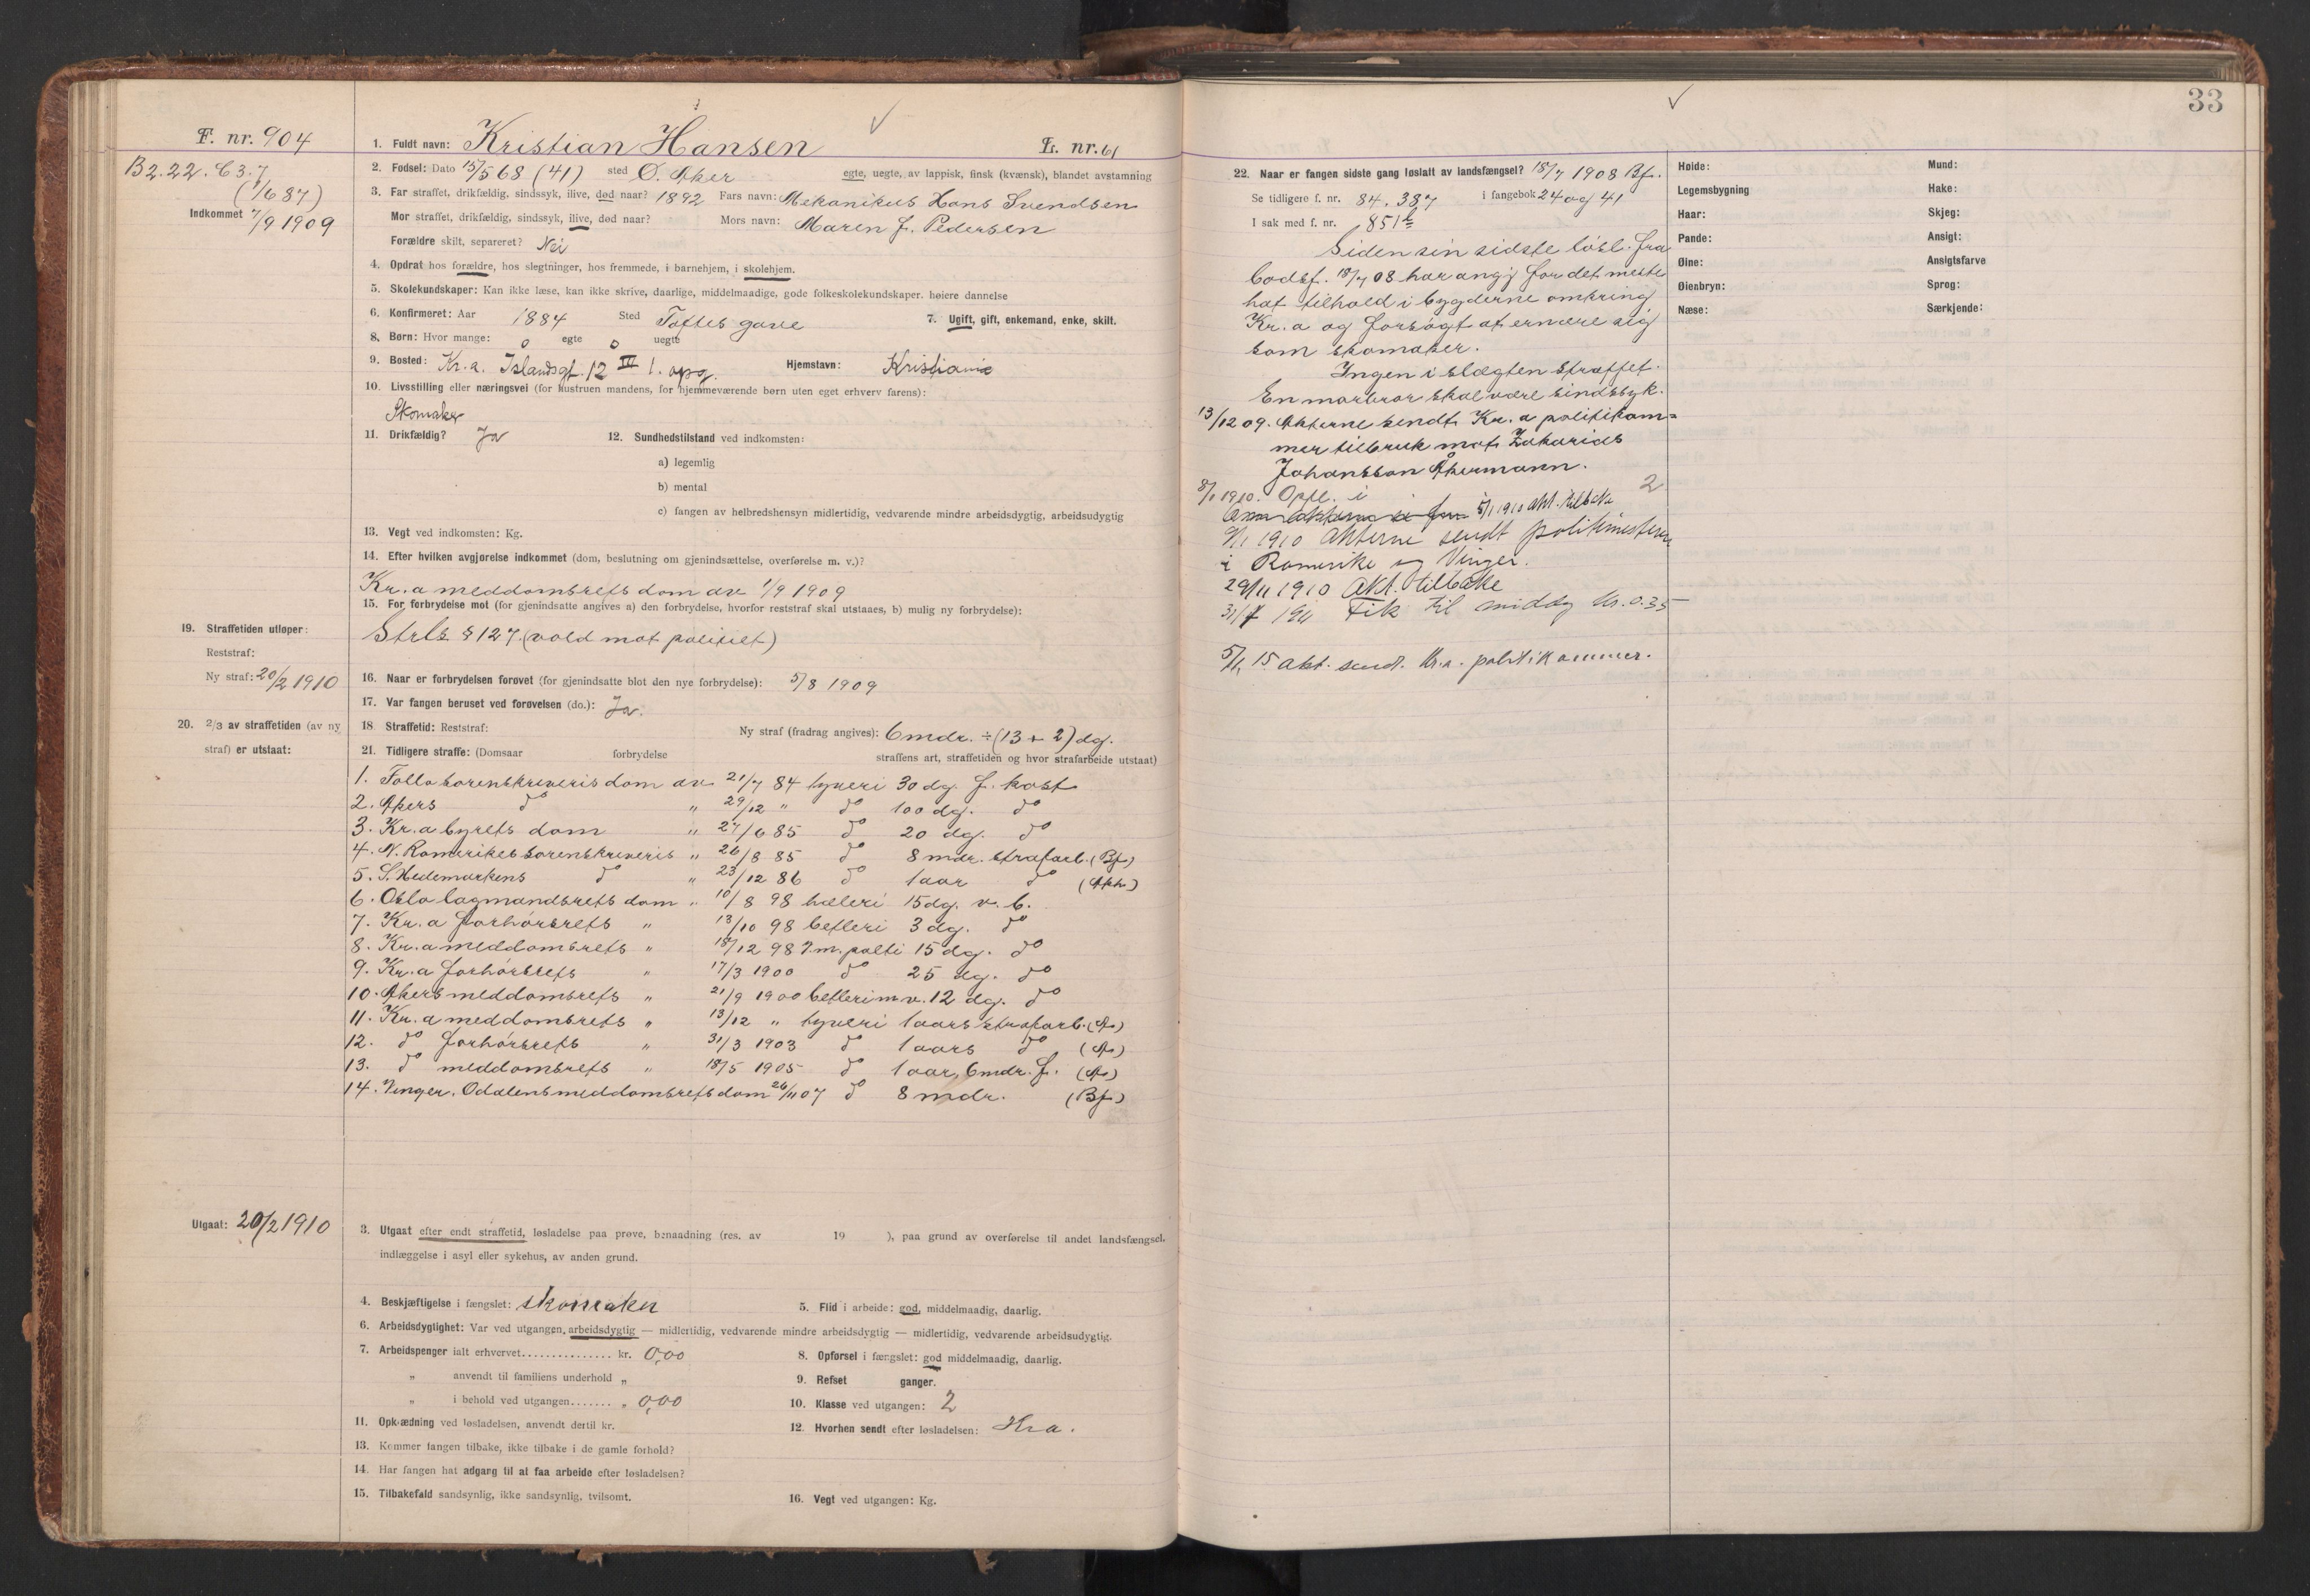 33
F. nr. 904
B2.22. C3.7
(1/6 87)
Indkommet 7/9 1909
1. Fuldt navn: Kristian Hansen L. nr. 61
2. Fødsel: Dato 15/5 68 (41) sted Ø. Aker egte, uegte, av lappisk, finsk (kvænsk), blandet avstamning
3. Far straffet, drikfældig, sindssyk, ilive, død naar? 1892 Fars navn: Mekanikus Hans Svendsen
Mor straffet, drikfældig, sindssyk, ilive, død naar? Mors navn: Maren f. Pedersen
Forældre skilt, separeret? Nei
4. Opdrat hos forældre, hos slegtninger, hos fremmede, i barnehjem, i skolehjem.
5. Skolekundskaper: Kan ikke læse, kan ikke skrive, daarlige, middelmaadige, gode folkeskolekundskaper. høiere dannelse
6. Konfirmeret: Aar 1884 Sted Toftes gave 7. Ugift, gift, enkemand, enke, skilt.
8. Børn: Hvor mange: 0 egte 0 uegte
9. Bosted: Kr.a. Islandsgt. 12 III 1. opg. Hjemstavn: Kristiania
10. Livsstilling eller næringsvei (for hustruen mandens, for hjemmeværende børn uten eget erhverv farens):
Skomaker
11. Drikfældig? Ja 12. Sundhedstilstand ved indkomsten:
a) legemlig
b) mental
c) fangen av helbredshensyn midlertidig, vedvarende mindre arbeidsdygtig, arbeidsudygtig
13. Vegt ved indkomsten: Kg.
14. Efter hvilken avgjørelse indkommet (dom, beslutning om gjenindsættelse, overførelse m. v.)?
Kr.a meddomsrets dom av 1/9 1909
15. For forbrydelse mot (for gjenindsatte angives a) den forbrydelse, hvorfor reststraf skal utstaaes, b) mulig ny forbrydelse):
Strls § 127. (vold mot politiet)
19. Straffetiden utløper:
Reststraf:
Ny straf: 20/2 1910
16. Naar er forbrydelsen forøvet (for gjenindsatte blot den nye forbrydelse): 5/8 1909
17. Var fangen beruset ved forøvelsen (do.): Ja.
20. 2/3 av straffetiden (av ny
straf) er utstaat:
18 Straffetid: Reststraf: Ny straf (fradrag angives): 6 mdr. ÷ (13 + 2) dg.
21. Tidligere straffe: (Domsaar forbrydelse straffens art, straffetiden og hvor strafarbeide utstaat)
1. Follo sorenskriveris dom av 21/7 84 tyveri 30 dg. f. kost
2. Akers do " 29/12 " do 100 dg. do
3. Kr.a byrets dom " 27/6 85 do 20 dg. do
4. N. Romerikes sorenskriveris " 26/8 85 do 8 mdr. strafarb. (Bf)
5. S. Hedemarkens do " 23/12 86 do 1 aar do (Akh)
6. Oslo lagmandsrets dom " 10/8 98 hæleri 15 dg. v. b.
7. Kr.a forhørsrets " 13/10 98 betleri 3 dg. do
8. Kr.a meddomsrets " 15/12 98 politi 15 dg. do
9. Kr.a forhørsrets " 17/3 1900 do 25 dg. do
10. Akers meddomsrets " 21/9 1900 betleri m.v. 12 dg. do
11. Kr.a meddomsrets " 13/12 " tyveri 1 aars strafarb. (A)
12. do forhørsrets " 31/3 1903 do 1 aars do (A)
13. do meddomsrets " 18/5 1905 do 1 aar, 6 mdr. f. (A)
14. Vinger, Odalens meddomsrets dom 26/11 07 do 8 mdr. (Bf)
Utgaat: 20/2 1910
3. Utgaat efter endt straffetid, løsladelse paa prøve, benaadning (res. av 19 ), paa grund av overførelse til andet landsfængsel.
indlæggelse i asyl eller sykehus, av anden grund.
4. Beskjæftigelse i fængslet: skomaker 5. Flid i arbeide: god, middelmaadig, daarlig.
6. Arbeidsdygtighet: Var ved utgangen arbeidsdygtig — midlertidig, vedvarende mindre arbeidsdygtig — midlertidig, vedvarende arbeidsudygtig.
7. Arbeidspenger ialt erhvervet............... kr. 0,00 8. Opførsel i fængslet: god middelmaadig, daarlig.
" anvendt til familiens underhold " 9. Refset ganger.
" i behold ved utgangen....... " 0,00 10. Klasse ved utgangen: 2
11. Opklædning ved løsladelsen, anvendt dertil kr. 12. Hvorhen sendt efter løsladelsen: Kra.
13. Kommer fangen tilbake, ikke tilbake i de gamle forhold?
14. Har fangen hat adgang til at faa arbeide efter løsladelsen?
15. Tilbakefald sandsynlig, ikke sandsynlig, tvilsomt. 16. Vegt ved utgangen: Kg.
22. Naar er fangen sidste gang løslatt av landsfængsel? 18/7 1908 Bf.
Se tidligere f. nr. 84. 387 i fangebok 24 og 41
I sak med f. nr. 851
Siden sin sidste løsl. fra
bodsf. 18/7 08 har angj for det meste
hat tilhold i bygderne omkring
Kr.a og forsøgt at ernære sig
som skomaker.
Ingen i slægten straffet.
En morbror skal være sindssyk.
13/12 09. Akterne sendt Kr.a politikam=
mer til bruk mot Zakarias
Johansson Åkermann.
8/1 1910. Opfl. i 2
5/1 1910 akt. tilbake
9/1 1910 Akterne sendt politimesteren
i Romerike og Vinger.
29/11 1910 Akt. tilbake
31/1 1911 Fik til middag kr. 0.35
5/11 15 akt. sendt. Kr.a. politikammer.
Høide: Mund:
Legemsbygning Hake:
Haar: Skjeg:
Pande: Ansigt:
Øine: Ansigtsfarve
Øienbryn: Sprog:
Næse: Særkjende: